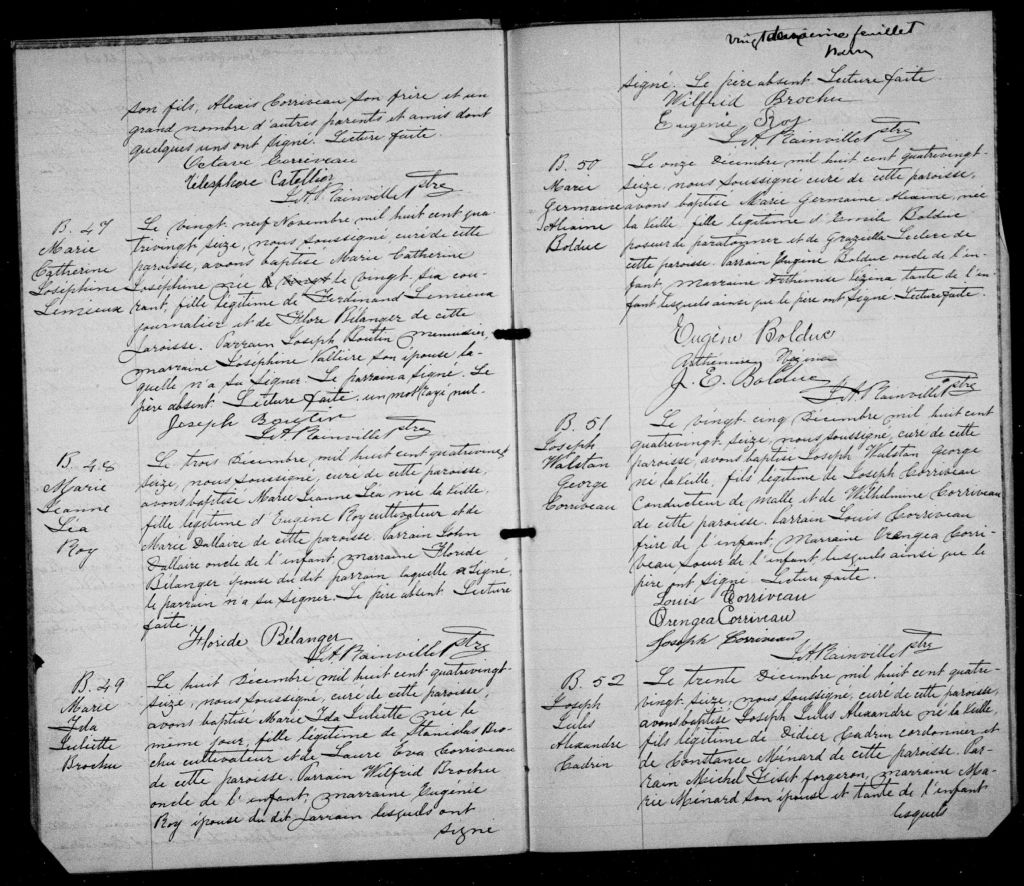 son fils, Alexis Corriveau son frère et un
grand nombre d'autres parents et amis dont
quelques uns ont signé. Lecture faite.
Octave Corriveau
Télesphore Catellier
L.A. Rainville Ptre
B. 47
Marie
Catherine
Joséphine
Lemieux
Le vingt neuf Novembre mil huit cent qua-
trevingt seize, nous soussigné, curé de cette
paroisse, avons baptisé Marie Catherine
Joséphine née le vingt six cou-
rant, fille légitime de Ferdinand Lemieux
journalier et de Flore Bélanger de cette
paroisse. Parrain Joseph Boutin menuisier,
marraine Joséphine Vallière son épouse la-
quelle n'a su signer. Le parrain a signé. Le
père absent. Lecture faite. un mot rayé nul.
Joseph Boutin
L.A. Rainville Ptre
B. 48
Marie
Jeanne
Léa
Roy
Le trois Décembre, mil huit cent quatrevingt
seize, nous soussigné, curé de cette paroisse,
avons baptisé Marie Jeanne Léa née la veille,
fille légitime d'Eugène Roy cultivateur et de
Marie Dallaire de cette paroisse. Parrain John
Dallaire oncle de l'enfant, marraine Floride
Bélanger épouse du dit parrain laquelle a signé,
le parrain n'a su signer. Le père absent. Lecture
faite.
Floride Bélanger
L.A. Rainville Ptre
B. 49
Marie
Ida
Juliette
Brochu
Le huit Décembre mil huit cent quatrevingt-
seize, nous soussigné, curé de cette paroisse,
avons baptisé Marie Ida Juliette née le
même jour, fille légitime de Stanislas Bro-
chu cultivateur et de Laure Eva Corriveau
de cette paroisse. Parrain Wilfrid Brochu
oncle de l'enfant, marraine Eugénie
Roy épouse du dit parrain lesquels ont
signé
vingt deuxième feuillet
signé. Le père absent. Lecture faite.
Wilfrid Brochu
Eugénie Roy
L.A. Rainville Ptre
B. 50
Marie
Germaine
Bolduc
Le onze Décembre mil huit cent quatrevingt-
seize, nous soussigné curé de cette paroisse,
avons baptisé Marie Germaine née
la veille fille légitime d'Emile Bolduc
poseur de paratonner et de Graziella Leclerc de
cette paroisse. Parrain Eugène Bolduc oncle de l'en-
fant, marraine Orthemise Vézina tante de l'en-
fant lesquels ainsi que le père ont signé. Lecture faite.
Eugène Bolduc
Vezina
J. E. Bolduc
L.A. Rainville Ptre
B. 51
Joseph
Walstan
George
Corriveau
Le vingt cinq Décembre mil huit cent
quatrevingt seize, nous soussigné, curé de cette
paroisse, avons baptisé Joseph Walstan George
né la veille, fils légitime de Joseph Corriveau
Conducteur de malle et de Wilhelmine Corriveau
de cette paroisse. Parrain Louis Corriveau
frère de l'enfant, marraine Orengea Corri-
veau soeur de l'enfant, lesquels ainsi que le
père ont signé. Lecture faite.
Louis Corriveau
Orengea Corriveau
Joseph Corriveau
L.A. Rainville Ptre
B. 52
Joseph
Jules
Alexandre
Cadrin
Le trente Décembre mil huit cent quatre-
vingt seize, nous soussigné, curé de cette paroisse,
avons baptisé Joseph Jules Alexandre né la veille,
fils légitime de Didier Cadrin cordonnier et
de Constance Ménard de cette paroisse. Par-
rain Michel Fiset forgeron, marraine Ma-
rie Ménard son épouse et tante de l'enfant
lesquels